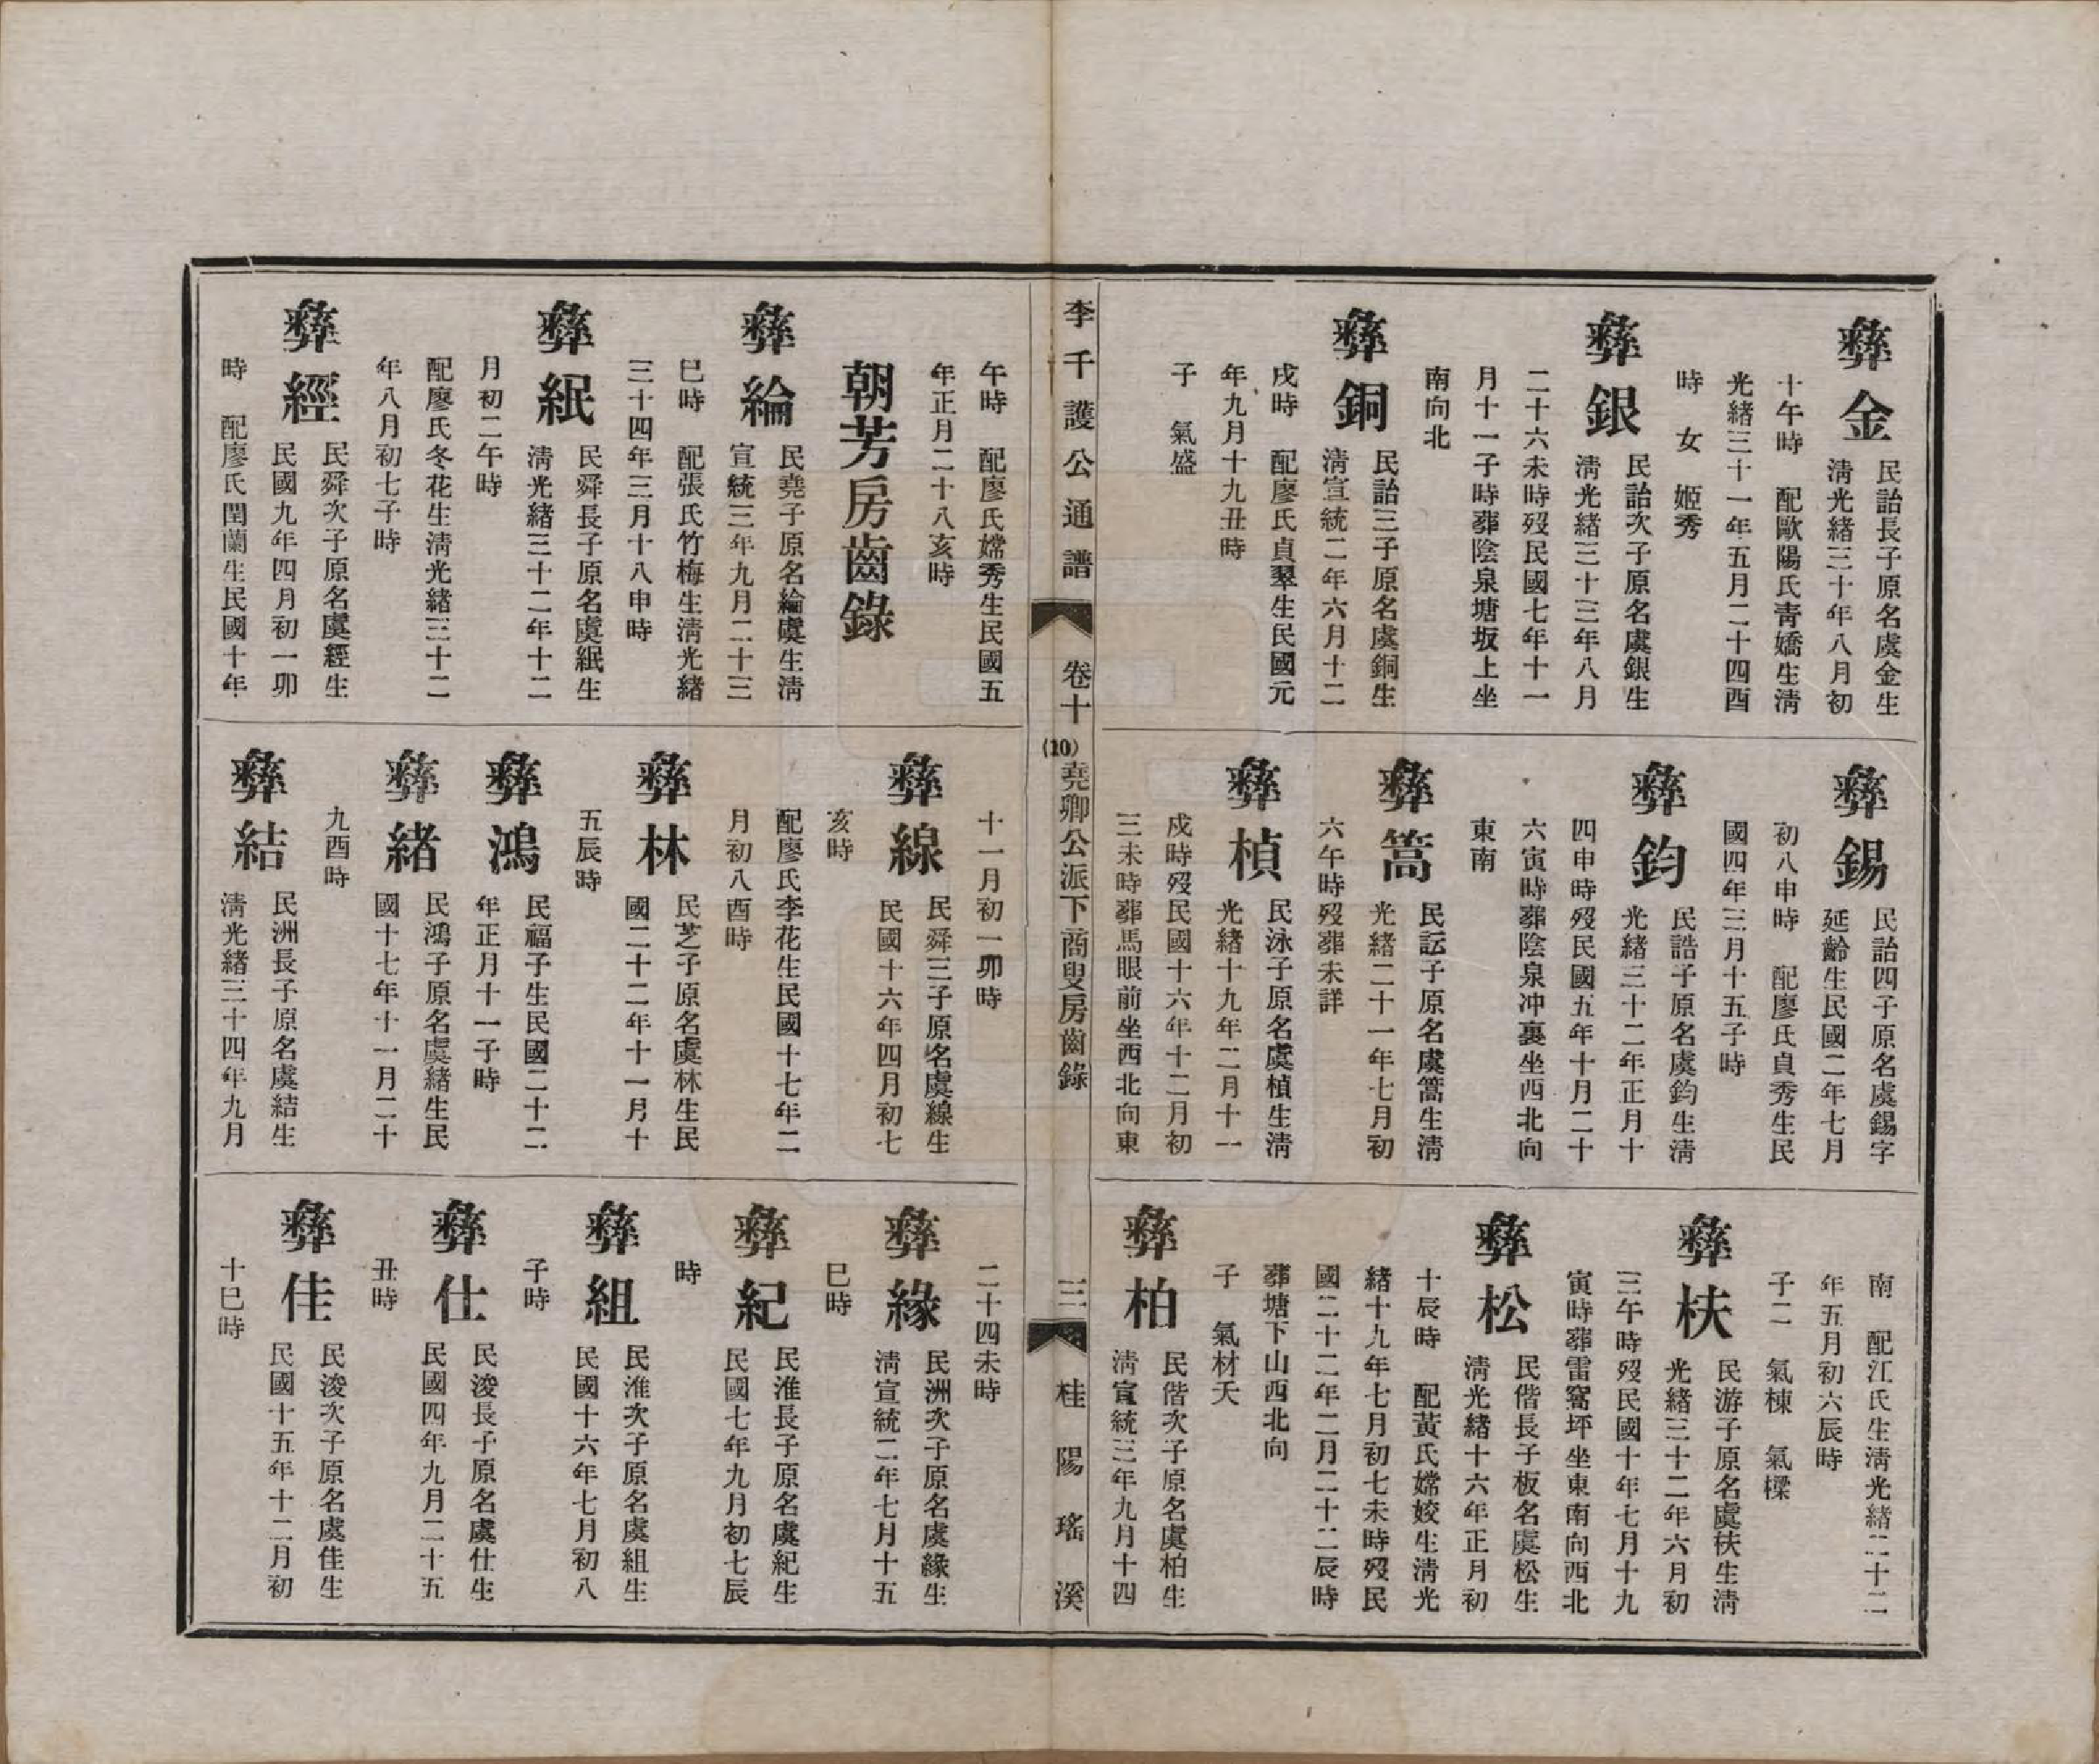 彝金
民詒長子原名虞金生
淸光緒三十年八月初
十午時　配歐陽氏青嬌生淸
光緒三十一年五月二十四酉
時　女　姬秀
彝銀
民詒次子原名虞銀生
淸光緒三十三年八月
二十六未時歿民國七年十一
月十一子時葬陰泉塘坂上坐
南向北
彝銅
民詒三子原名虞銅生
淸宣統二年六月十二
戌時　配廖氏貞翠生民國元
年九月十九丑時
子　氣盛
彝錫
民詒四子原名虞錫字
延齡生民國二年七月
初八申時　配廖氏貞秀生民
國四年三月十五子時
彝鈞
民誥子原名虞鈞生淸
光緒三十二年正月十
四申時歿民國五年十月二十
六寅時葬陰泉冲裏坐西北向
東南
彝篙
民訟子原名虞篙生淸
光緒二十一年七月初
六午時歿葬未詳
彝楨
民泳子原名虞楨生淸
光緒十九年二月十一
戌時歿民國十六年十二月初
三未時葬馬眼前坐西北向東
南　配江氏生淸光緒二十二
年五月初六辰時
子二　氣棟　氣櫟
彝枎
民游子原名虞枎生淸
光緒三十二年六月初
三午時歿民國十年七月十九
寅時葬雷窩坪坐東南向西北
彝松
民偕長子板名虞松生
淸光緒十六年正月初
十辰時　配黃氏嫦姣生淸光
緒十九年七月初七未時歿民
國二十二年二月二十二辰時
葬塘下山西北向
子　氣材夭
彝柏
民偕次子原名虞柏生
淸宣統三年九月十四
李千護公通譜
卷十
(10)
堯卿公派下商叟房齒錄
三
桂陽瑤溪
午時　配廖氏嫦秀生民國五
年正月二十八亥時
朝芳房齒錄
彝綸
民堯子原名綸虞生淸
宣統三年九月二十三
巳時　配張氏竹梅生淸光緒
三十四年三月十八申時
彝紙
民舜長子原名虞紙生
淸光緒三十二年十二
月初二午時
配廖氏冬花生淸光緒三十二
年八月初七子時
彝經
民舜次子原名虞經生
民國九年四月初一卯
時　配廖氏閏蘭生民國十年
十一月初一卯時
彝線
民舜三子原名虞線生
民國十六年四月初七
亥時
配廖氏李花生民國十七年二
月初八酉時
彝林
民芝子原名虞林生民
國二十二年十一月十
五辰時
彝鴻
民福子生民國二十二
年正月十一子時
彝緒
民鴻子原名虞緒生民
國十七年十一月二十
九酉時
彝結
民洲長子原名虞結生
淸光緒三十四年九月
二十四未時
彝緣
民洲次子原名虞緣生
淸宣統二年七月十五
巳時
彝紀
民淮長子原名虞紀生
民國七年九月初七辰
時
彝組
民淮次子原名虞組生
民國十六年七月初八
子時
彝仕
民浚長子原名虞仕生
民國四年九月二十五
丑時
彝佳
民浚次子原名虞佳生
民國十五年十二月初
十巳時